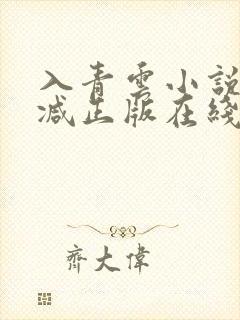 入青雲小說
减出版在綫
齊大偉